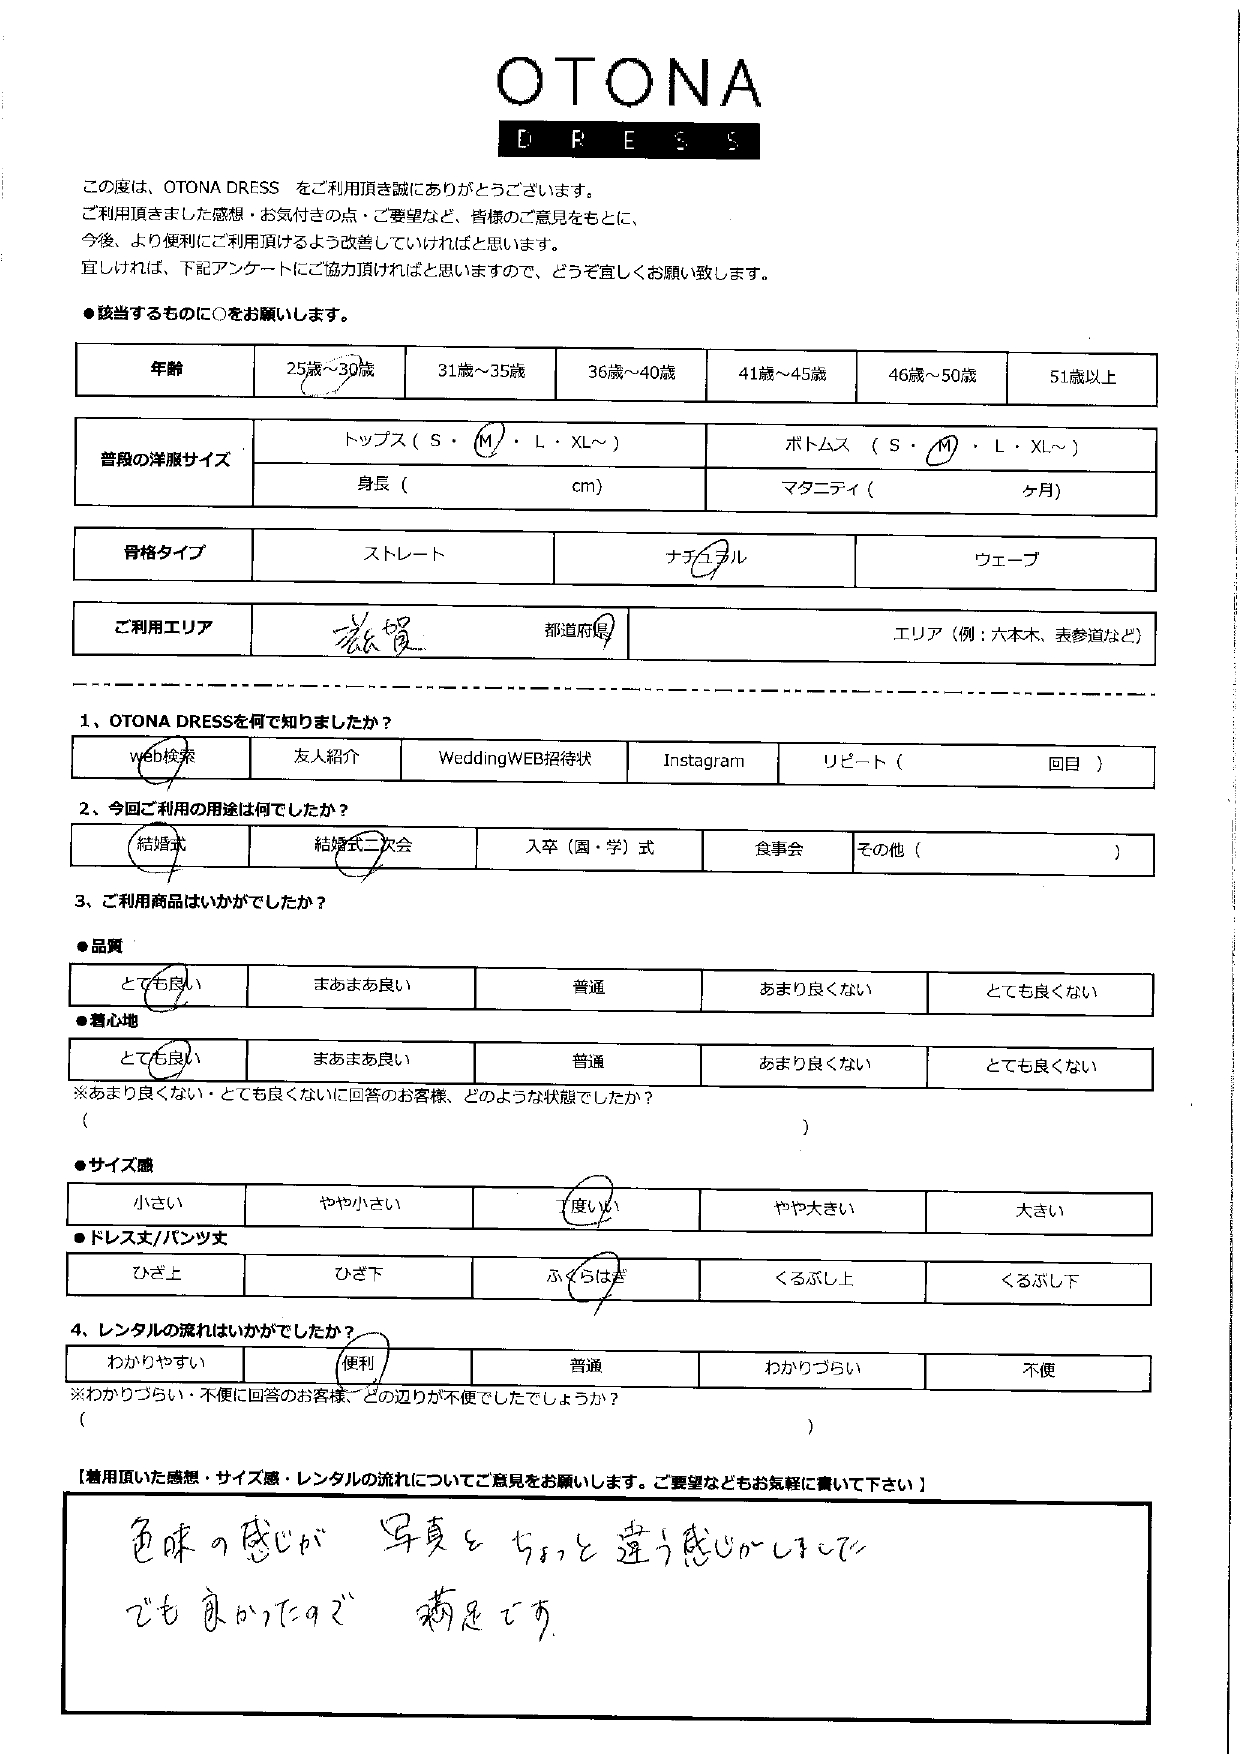 OTONA
DRESS
この度は、OTONA DRESS をご利用頂き誠にありがとうございます。
ご利用頂きました感想・お気付きの点・ご要望など、皆様のご意見をもとに、
今後、より便利にご利用頂けるよう改善していければと思います。
宜しければ、下記アンケートにご協力頂ければと思いますので、どうぞ宜しくお願い致します。
●該当するものに○をお願いします。
年齢 25歳～30歳 31歳～35歳 36歳～40歳 41歳～45歳 46歳～50歳 51歳以上
普段の洋服サイズ トップス ( S ・ M ・ L ・ XL～ ) ボトムス ( S ・ M ・ L ・ XL～ )
身長 ( cm) マタニティ ( ヶ月)
骨格タイプ ストレート ナチュラル ウェーブ
ご利用エリア 滋賀 都道府県 エリア（例：六本木、表参道など）
1、OTONA DRESSを何で知りましたか？
web検索 友人紹介 WeddingWEB招待状 Instagram リピート（ 回目 ）
2、今回ご利用の用途は何でしたか？
結婚式 結婚式二次会 入卒（園・学）式 食事会 その他（ ）
3、ご利用商品はいかがでしたか？
●品質
とても良い まあまあ良い 普通 あまり良くない とても良くない
●着心地
とても良い まあまあ良い 普通 あまり良くない とても良くない
※あまり良くない・とても良くないに回答のお客様、どのような状態でしたか？
( )
●サイズ感
小さい やや小さい 丁度いい やや大きい 大きい
●ドレス丈/パンツ丈
ひざ上 ひざ下 ふくらはぎ くるぶし上 くるぶし下
4、レンタルの流れはいかがでしたか？
わかりやすい 便利 普通 わかりづらい 不便
※わかりづらい・不便に回答のお客様、どの辺りが不便でしたでしょうか？
( )
【着用頂いた感想・サイズ感・レンタルの流れについてご意見をお願いします。ご要望などもお気軽に書いて下さい】
色味の感じが 写真と ちょっと違う感じがしました
でも良かったので 満足です.